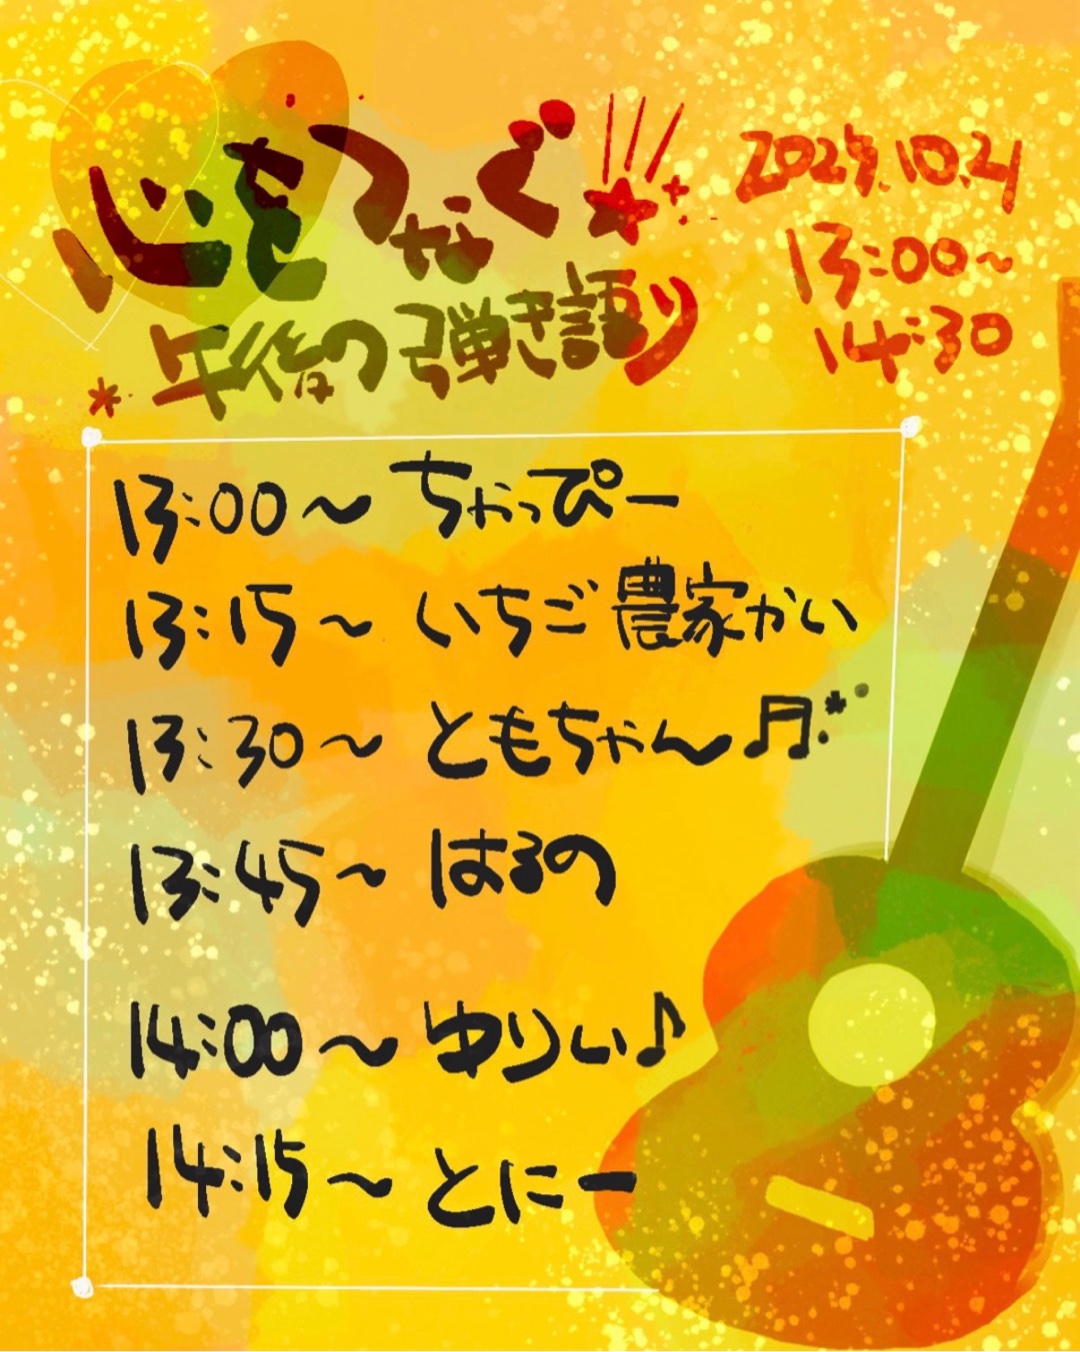 心をつなぐ
午後の弾き語り
2024.10.21
13:00~
14:30
13:00~ ちゃっぴー
13:15~ いちご農家かい
13:30~ ともちゃん🎵
13:45~ はるの
14:00~ ゆりぃ♪
14:15~ とにー